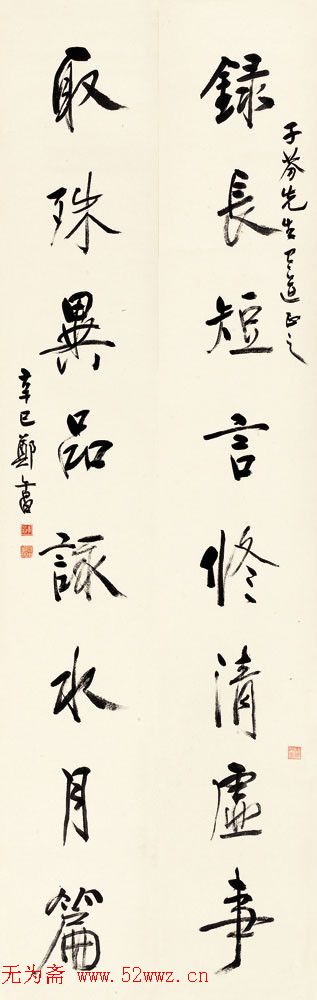 子芬先生有道正之
録長短言修清虛事
取珠異品詠水月篇
辛巳鄭午昌
无为斋 www.52wwz.cn